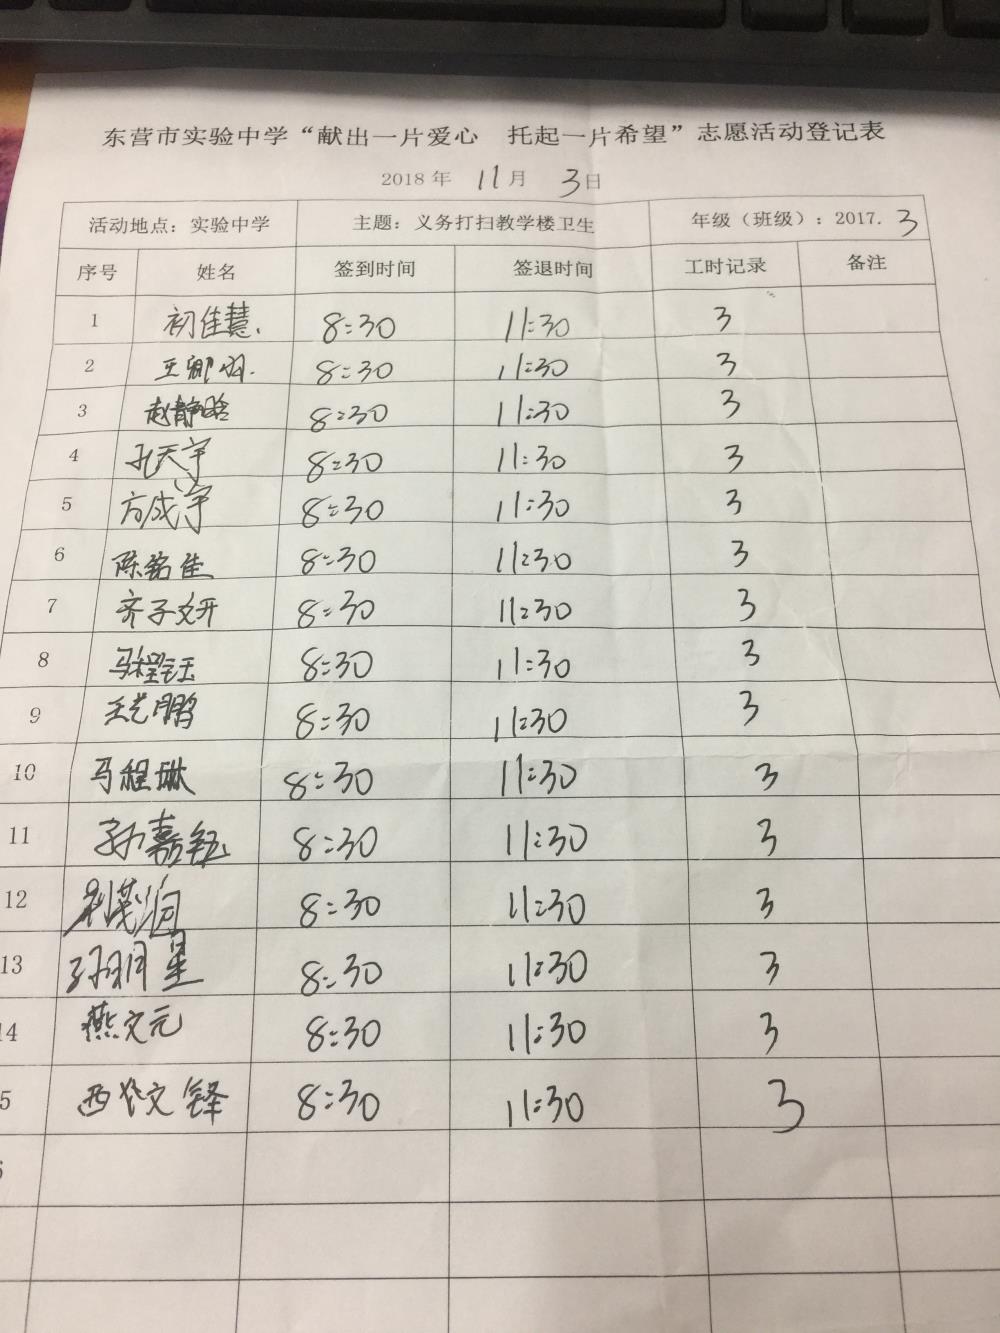 东营市实验中学“献出一片爱心 托起一片希望”志愿活动登记表
2018 年 11 月 3 日
活动地点：实验中学 主题：义务打扫教学楼卫生 年级（班级）：2017. 3
序号 姓名 签到时间 签退时间 工时记录 备注
1 初佳慧. 8:30 11:30 3
2 王 8:30 11:30 3
3 赵静晗 8:30 11:30 3
4 孔天宇 8:30 11:30 3
5 方成宇 8:30 11:30 3
6 陈铭佳 8:30 11:30 3
7 齐子妍 8:30 11:30 3
8 马程钰 8:30 11:30 3
9 王艺鹏 8:30 11:30 3
10 马程琳 8:30 11:30 3
11 孙嘉钰 8:30 11:30 3
12 刘茂润 8:30 11:30 3
13 孙明星 8:30 11:30 3
14 燕文元 8:30 11:30 3
5 西 文铎 8:30 11:30 3
6